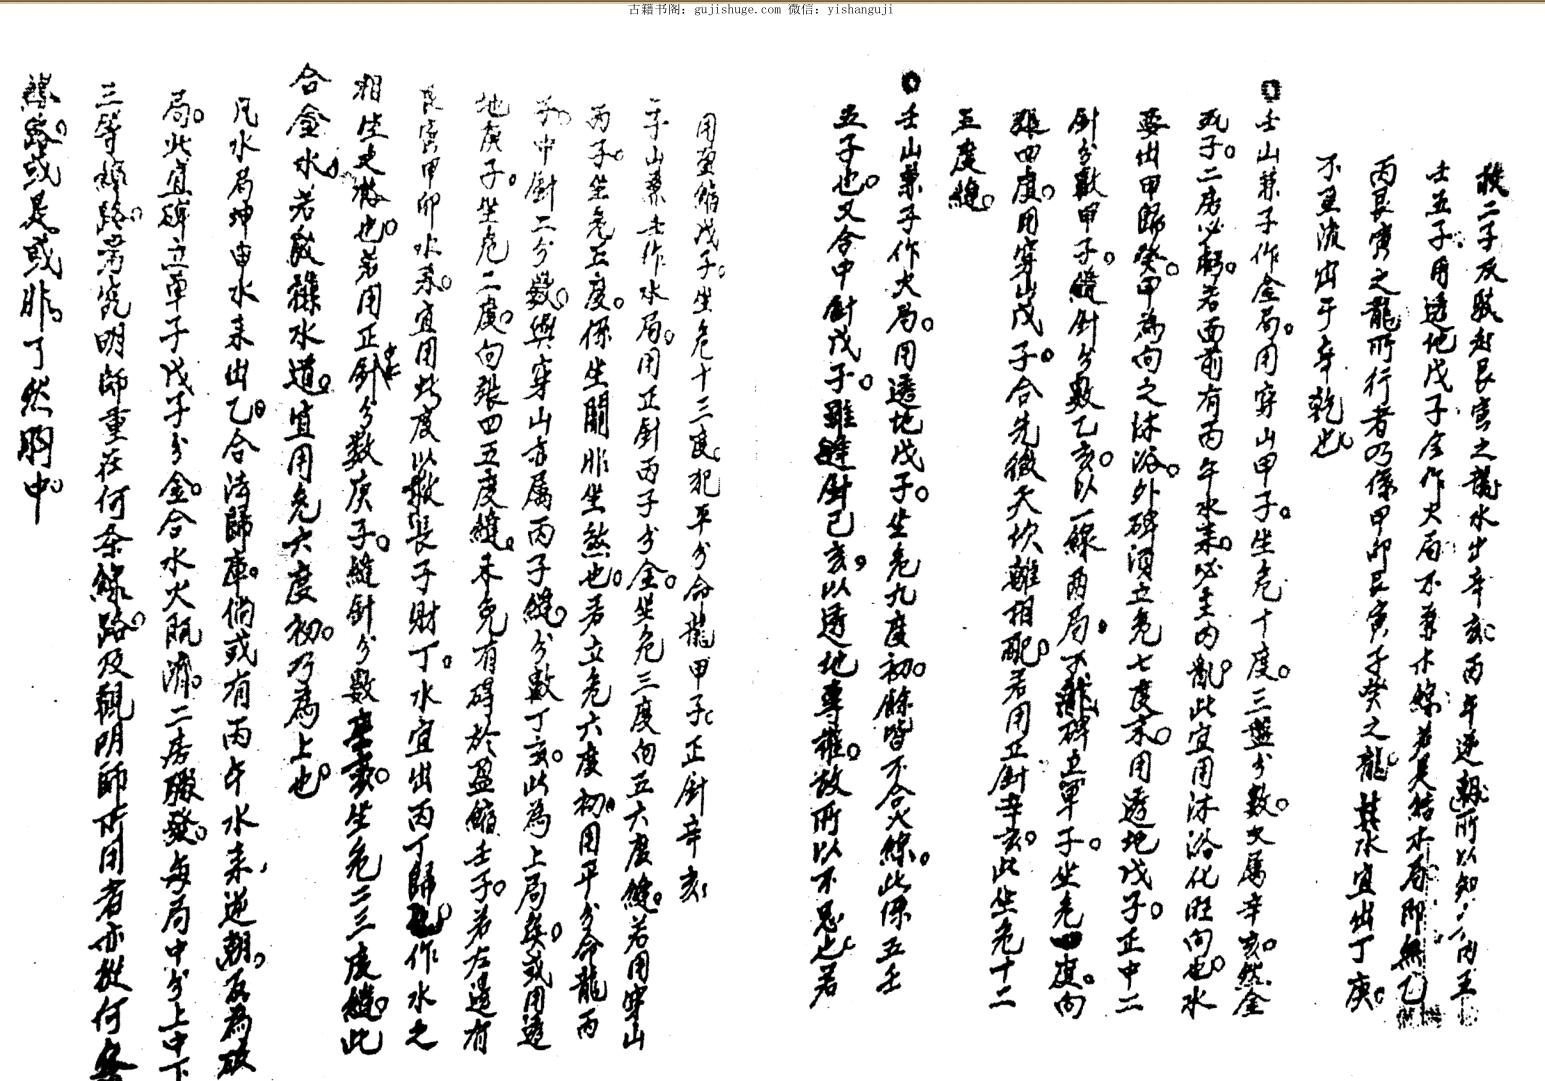 古籍书阁：gujishuge.com 微信：yishanguji
二子反驳起艮寅之龍水出辛亥丙午逆朝所以知
壬五子用透地戊子全作火局不兼水線若是結水局即無乙
丙艮寅之龍所行者乃係甲卯艮寅子癸之龍其水宜出丁庚
不宜流出于辛乾也
壬山兼子作金局用穿山甲子坐危十度三盤分數又属辛亥然金
死子二房必弱若面前有丙午水來必主内亂此宜用沐浴化旺向也水
要出甲歸癸甲為向之沐浴外碑須立危七度末用透地戊子正中二
針分數甲子縫針分數乙亥以一線两局碑立單子坐危四度向
張四度用穿山戊子合先後天坎離相配若用正針辛亥此坐危十二
五度縫
壬山兼子作火局用透地戊子坐危九度初餘皆不合火線此係五壬
五子也又合中針戊子雖縫針己亥以透地專權故所以不忌也若
用盈縮戊子坐危十三度犯平分命龍甲子正針辛亥
子山兼壬作水局用正針丙子分金坐危三度向五六度縫若用穿山
丙子坐危五度係坐關非坐煞也若立危六度初用平分命龍丙
子中針二分數與穿山亦属丙子縫分數丁亥此為上局矣或用透
地庚子坐危二度向張四五度縫未免有碍於盈縮壬子若左邊有
艮寅甲卯水來宜用此度以救長子財丁水宜出丙丁歸作水之
相生更裕也若用正針中針分數庚子縫針分數坐危二三度縫此
合金水若設雜水道宜用危六度初乃為上也
凡水局坤申水來出乙合法歸庫倘或有丙午水來逆朝反為破
局此宜碑立單子戊子分金合水火既濟二房驟發每局中分上中下
三等線路需究明師重在何条線路及觀明師所用者亦從何
線路或是或非了然胸中